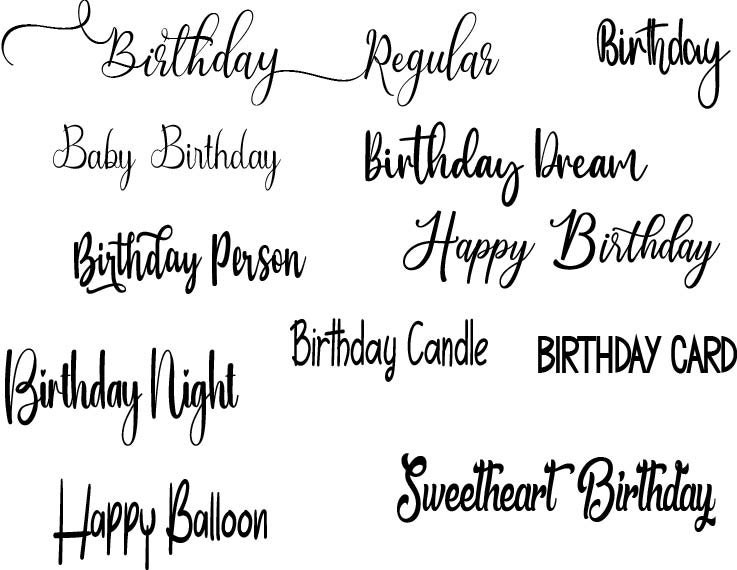 Birthday Regular
Birthday
Baby Birthday
Birthday Dream
Birthday Person
Happy Birthday
Birthday Candle
BIRTHDAY CARD
Birthday Night
Happy Balloon
Sweetheart Birthday